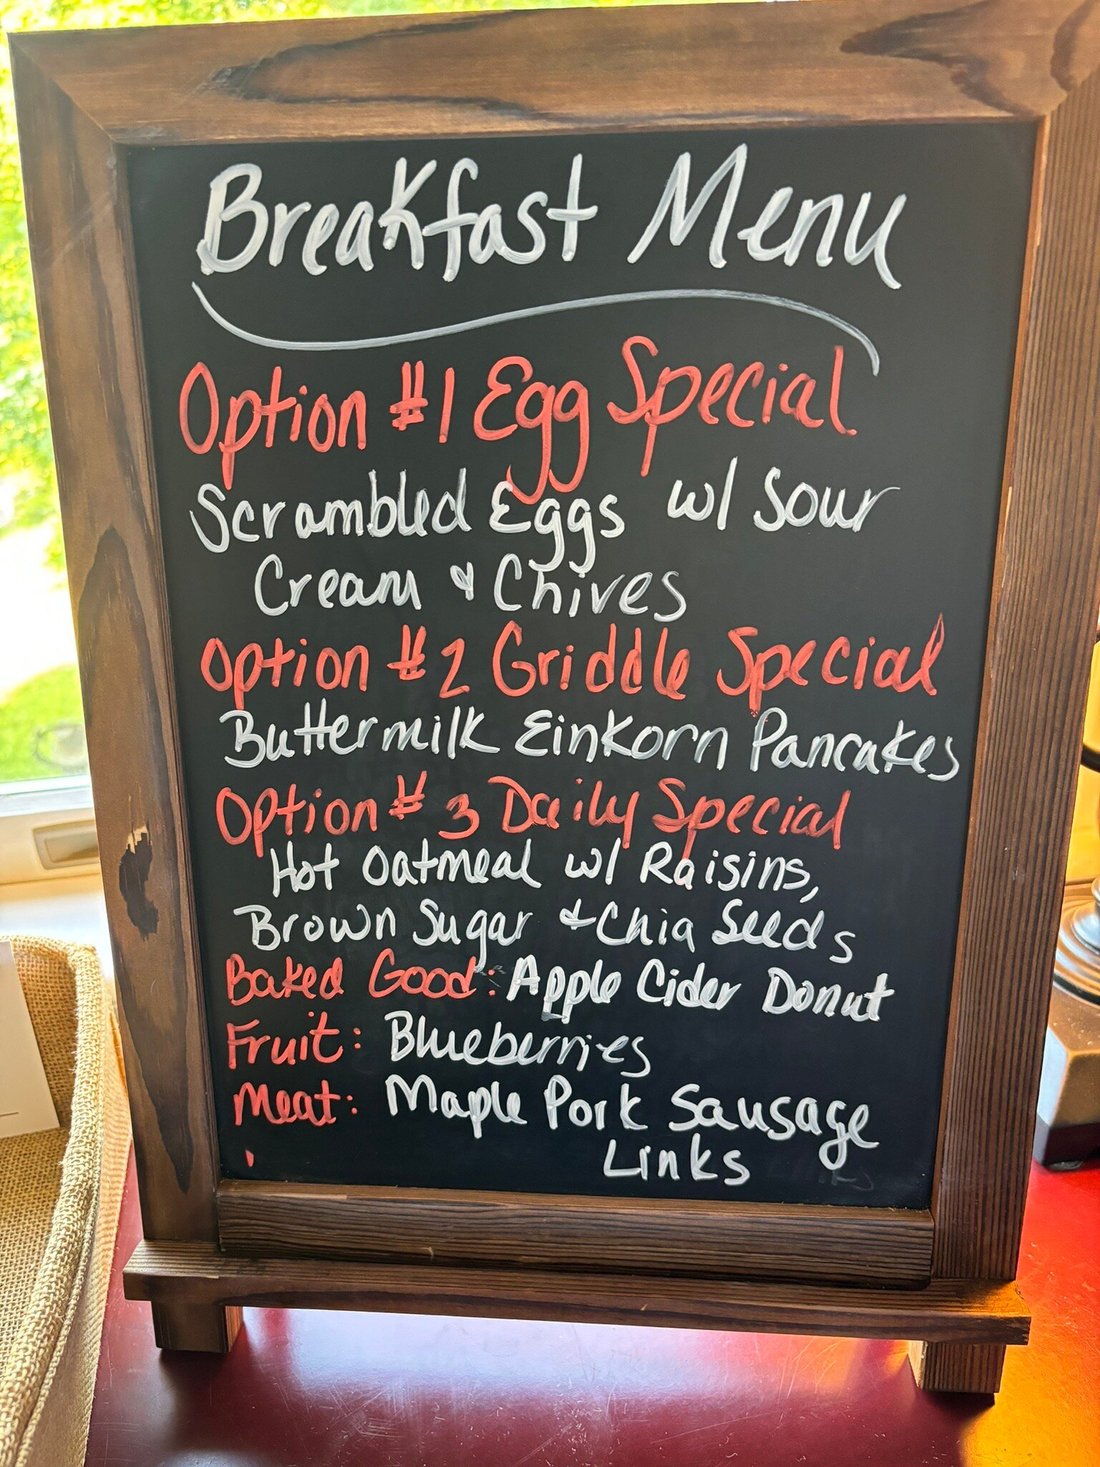 Breakfast Menu
Option #1 Egg Special
Scrambled Eggs w/ Sour
Cream & Chives
Option #2 Griddle Special
Buttermilk Einkorn Pancakes
Option #3 Daily Special
Hot Oatmeal w/ Raisins,
Brown Sugar & Chia Seeds
Baked Good: Apple Cider Donut
Fruit: Blueberries
Meat: Maple Pork Sausage
Links